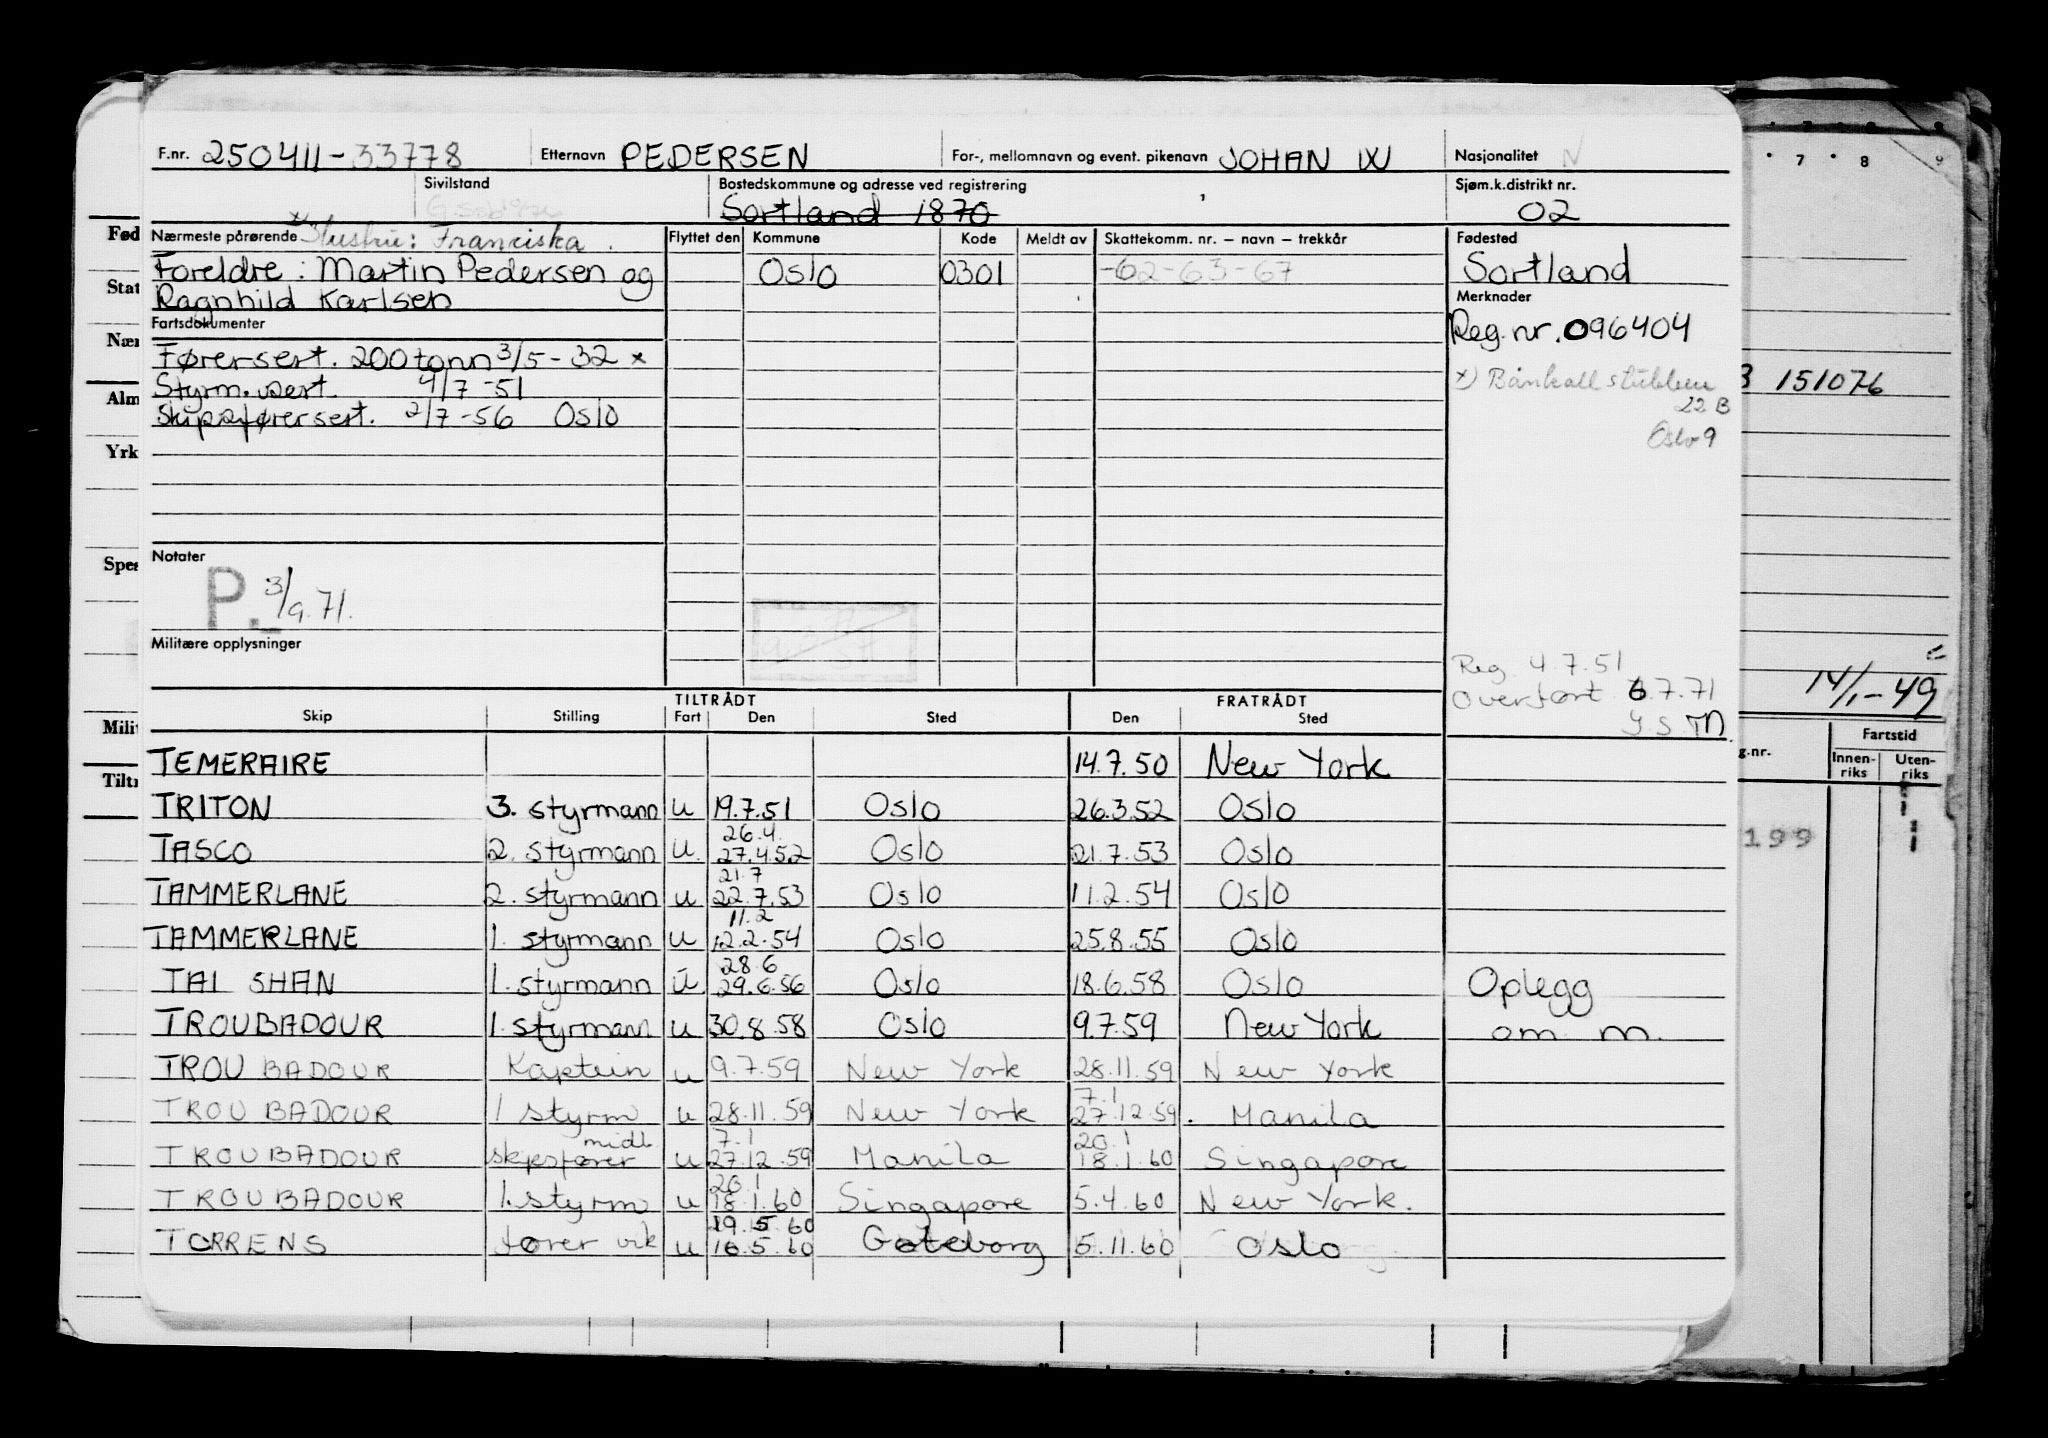 F.nr. 250411-33778 Etternavn PEDERSEN For-, mellomnavn og event. pikenavn JOHAN W Nasjonalitet N
Sivilstand Bostedskommune og adresse ved registrering Sjøm.k.distrikt nr.
Sortland 1870 02
Nærmeste pårørende Hustru: Franciska Flyttet den Kommune Kode Meldt av Skattekomm. nr. – navn – trekkår Fødested
Foreldre: Martin Pedersen og Oslo 0301 -62-63-67 Sortland
Ragnhild Karlsen Merknader
Fartsdokumenter Reg.nr. 096404
Førersert. 200 tonn 3/5-32 x
Styrm.sert. 4/7-51 x) Bånkallstubben
22 B
Skipsførersert. 2/7-56 Oslo
Oslo 9
Notater
P. 3/9.71.
Militære opplysninger
Reg. 4.7.51
Overført 6.7.71
TILTRÅDT FRATRÅDT
Skip Stilling Fart Den Sted Den Sted
TEMERAIRE 14.7.50 New York
TRITON 3. styrmann u 19.7.51 Oslo 26.3.52 Oslo
26.4
TASCO 2. styrmann u. 27.4.52 Oslo 21.7.53 Oslo
21.7
TAMMERLANE 2. styrmann u 22.7.53 Oslo 11.2.54 Oslo
11.2
TAMMERLANE 1. styrmann u 12.2.54 Oslo 25.8.55 Oslo
28.6
TAI SHAN 1. styrmann u. 29.6.56 Oslo 18.6.58 Oslo Oplegg
TROUBADOUR 1. styrmann u 30.8.58 Oslo 9.7.59 New York om m.
TROUBADOUR Kaptein u 9.7.59 New York 28.11.59 New York
7.1
TROUBADOUR 1 styrm u 28.11.59 New York 27.12.59. Manila
midl 7.1 20.1
TROUBADOUR skipsfører u 27.12.59 Manila 18.1.60 Singapore
20.1
TROUBADOUR 1. styrm u 18.1.60 Singapore 5.4.60 New York.
19.5.60
TORRENS fører vik u 16.5.60 Gøteborg 5.11.60 Oslo
Fød
Stat
Nær
Alm
Yrk
Spes
Mili
Tiltr
7 8 9
3 151076
14/1-49
g.nr. Fartstid
Innen-riks Uten-riks
199